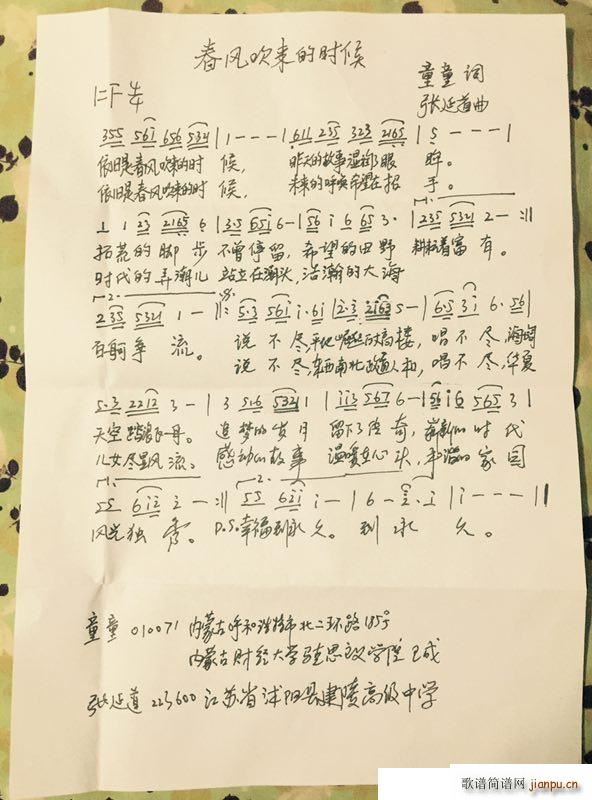 春风吹来的时候
童童 词
1=F 4/4
张延道曲
355 561 656 5321 | 1 - - - | 611 235 323 2165 | 5 - - - |
依旧是春风吹来的时 候, 昨天的故事湿了眼 眸。
依旧是春风吹来的时 候, 未来的呼唤希望在招 手。
1 1 23 2165 6 | 3·5 651 6 - | 56 1 6 65 3· | 235 5321 2 - :||
拓荒的脚步 不曾停留,希望的田野 耕耘着富有。
时代的弄潮儿 站立在潮头,浩瀚的大海
235 5321 1 - ||: 5·3 561 1·61 | 2·3 2163 5 - | 6·5 31 6·56 |
百舸争流。 说不尽,平地崛起的高楼,唱不尽,海阔
说不尽,东西南北政通人和,唱不尽,华夏
5·3 2212 3 - | 3 5·6 5321 1 | 113 567 6 - | 56 16 565 3 |
天空踏浪飞舟。 追梦的岁月 留下了传奇,崭新的时代
儿女尽显风流。 感动的故事 温暖在心头,和谐的家园
55 612 2 - :|| 55 621 1 - | 6 - 2·1 | 1 - - - ||
风光独秀。 D.S.幸福到永久。 到永久。
童童 010071 内蒙古呼和浩特市北二环路185号
内蒙古财经大学马克思主义学院 王成
张延道 223600 江苏省沭阳县建陵高级中学
歌谱简谱网 jianpu.cn